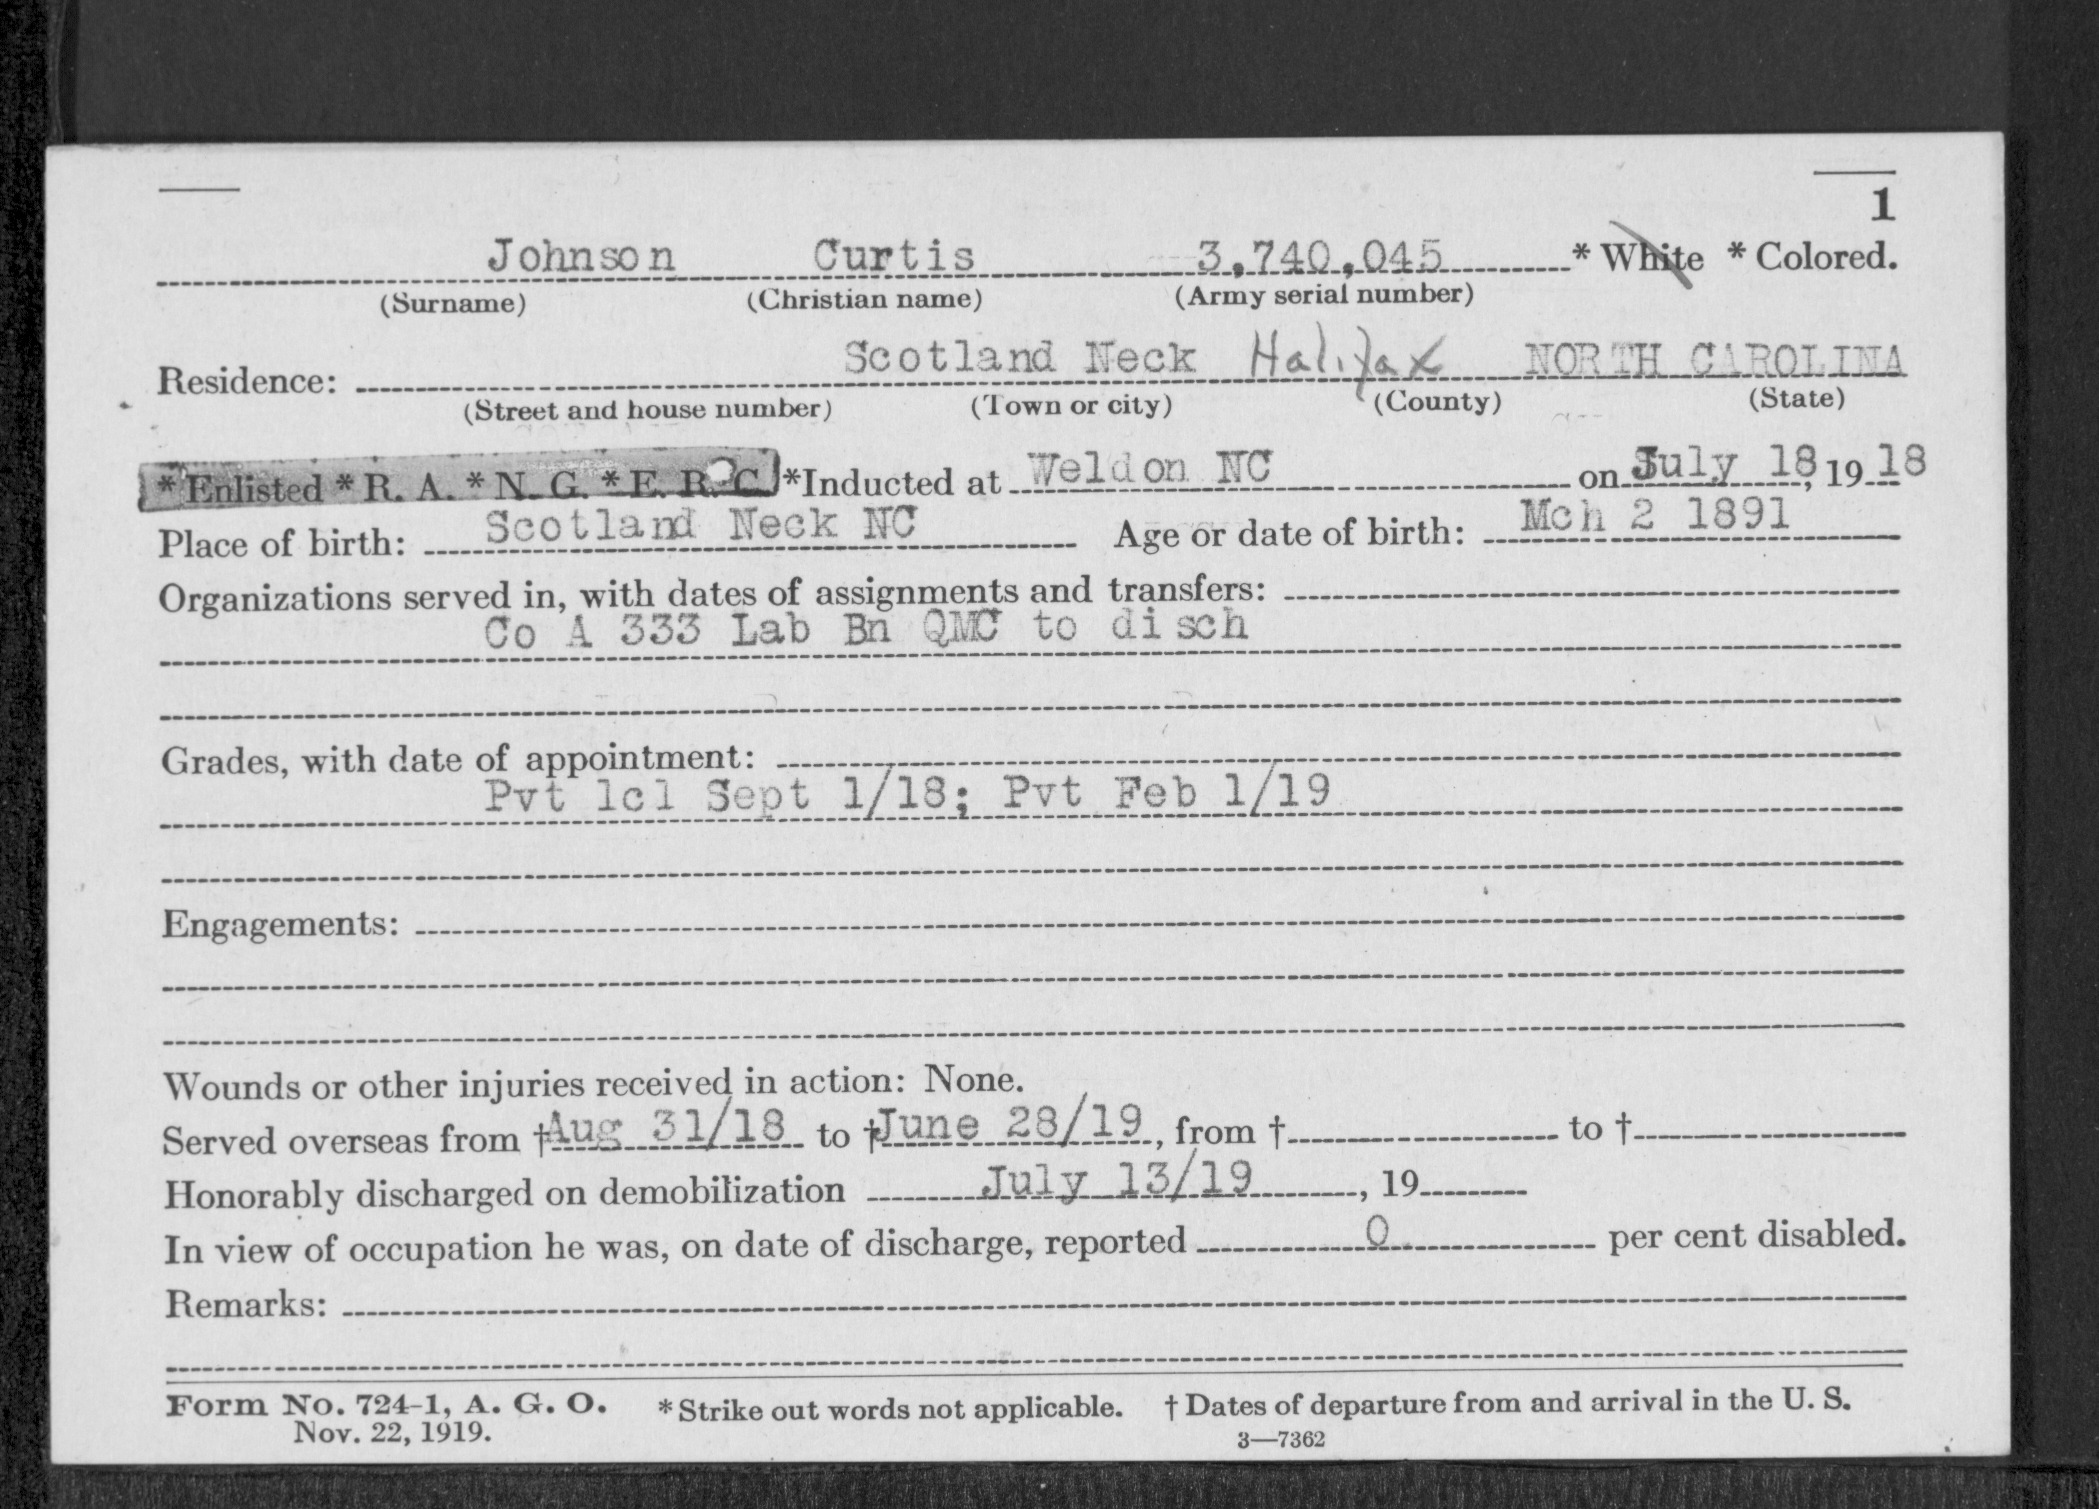 1
Johnson Curtis 3,740,045 * White * Colored.
(Surname) (Christian name) (Army serial number)
Scotland Neck Halifax NORTH CAROLINA
Residence:
(Street and house number) (Town or city) (County) (State)
*Enlisted *R. A. *N. G. *E. R. C. *Inducted at Weldon NC on July 18, 1918
Place of birth: Scotland Neck NC Age or date of birth: Mch 2 1891
Organizations served in, with dates of assignments and transfers:
Co A 333 Lab Bn QMC to disch
Grades, with date of appointment:
Pvt 1cl Sept 1/18; Pvt Feb 1/19
Engagements:
Wounds or other injuries received in action: None.
Served overseas from †Aug 31/18 to †June 28/19, from † to †
Honorably discharged on demobilization July 13/19, 19
In view of occupation he was, on date of discharge, reported 0 per cent disabled.
Remarks:
Form No. 724-1, A. G. O. *Strike out words not applicable. †Dates of departure from and arrival in the U. S.
Nov. 22, 1919. 3—7362